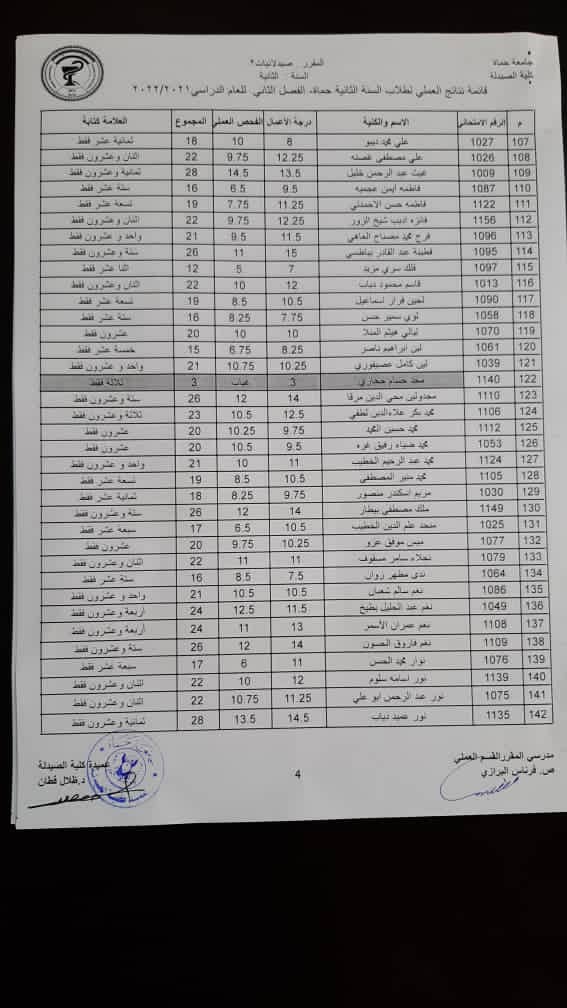 جامعة حماة
كلية الصيدلة
المقرر : صيدلانيات ٢
السنة : الثانية
قائمة نتائج العملي لطلاب السنة الثانية حماة، الفصل الثاني للعام الدراسي ٢٠٢٢/٢٠٢١
م الرقم الامتحاني الاسم والكنية درجة الأعمال الفحص العملي المجموع العلامة كتابة
107 1027 علي محمد ديبو 8 10 18 ثمانية عشر فقط
108 1026 علي مصطفى غصنه 12.25 9.75 22 اثنان وعشرون فقط
109 1009 غيث عبد الرحمن خليل 13.5 14.5 28 ثمانية وعشرون فقط
110 1087 فاطمه ايمن عجميه 9.5 6.5 16 ستة عشر فقط
111 1122 فاطمه حسن الاحمدني 11.25 7.75 19 تسعة عشر فقط
112 1156 فائزه اديب شيخ الزور 12.25 9.75 22 اثنان وعشرون فقط
113 1096 فرح محمد مصباح 11.5 9.5 21 واحد و عشرون فقط
114 1095 فطينة عبد القادر 15 11 26 ستة وعشرون فقط
115 1097 فلك سري مزيد 7 5 12 اثنا عشر فقط
116 1013 قاسم محمود دياب 12 10 22 اثنان وعشرون فقط
117 1090 لجين فراز اسماعيل 10.5 8.5 19 تسعة عشر فقط
118 1058 لوي سمير حسن 7.75 8.25 16 ستة عشر فقط
119 1070 ليالي هيثم المنلا 10 10 20 عشرون فقط
120 1061 لين ابراهيم ناصر 8.25 6.75 15 خمسة عشر فقط
121 1039 لين كامل عصيفوري 10.25 10.75 21 واحد و عشرون فقط
122 1140 مجد حسام حجازي 3 غياب 3 ثلاثة فقط
123 1110 مجدولين محي الدين مرقا 14 12 26 ستة وعشرون فقط
124 1106 محمد بكر علاءالدين لطفي 12.5 10.5 23 ثلاثة وعشرون فقط
125 1112 محمد حسين 9.75 10.25 20 عشرون فقط
126 1053 محمد ضياء رفيق غزه 9.5 10.5 20 عشرون فقط
127 1124 محمد عبد الرحيم الخطيب 11 10 21 واحد و عشرون فقط
128 1105 محمد منير المصطفى 10.5 8.5 19 تسعة عشر فقط
129 1030 مريم اسكندر منصور 9.75 8.25 18 ثمانية عشر فقط
130 1149 ملك مصطفى بيطار 14 12 26 ستة وعشرون فقط
131 1025 منجد علم الدين الخطيب 10.5 6.5 17 سبعة عشر فقط
132 1077 ميس موفق عزو 10.25 9.75 20 عشرون فقط
133 1079 نجلاء سامر مسقوف 11 11 22 اثنان وعشرون فقط
134 1064 ندى مظهر زوان 7.5 8.5 16 ستة عشر فقط
135 1086 نغم سالم شعبان 10.5 10.5 21 واحد و عشرون فقط
136 1049 نغم عبد الجليل بطيخ 11.5 12.5 24 أربعة وعشرون فقط
137 1108 نغم عمران الأسمر 13 11 24 أربعة وعشرون فقط
138 1109 نغم فاروق الحسون 14 12 26 ستة وعشرون فقط
139 1076 نوار محمد الحسن 11 6 17 سبعة عشر فقط
140 1139 نور اسامه سلوم 12 10 22 اثنان وعشرون فقط
141 1075 نور عبد الرحمن ابو علي 11.25 10.75 22 اثنان وعشرون فقط
142 1135 نور عميد دياب 14.5 13.5 28 ثمانية وعشرون فقط
مدرسي المقرر القسم العملي
ص. فرناس البرازي
4
عميدة كلية الصيدلة
د.ظلال قطان